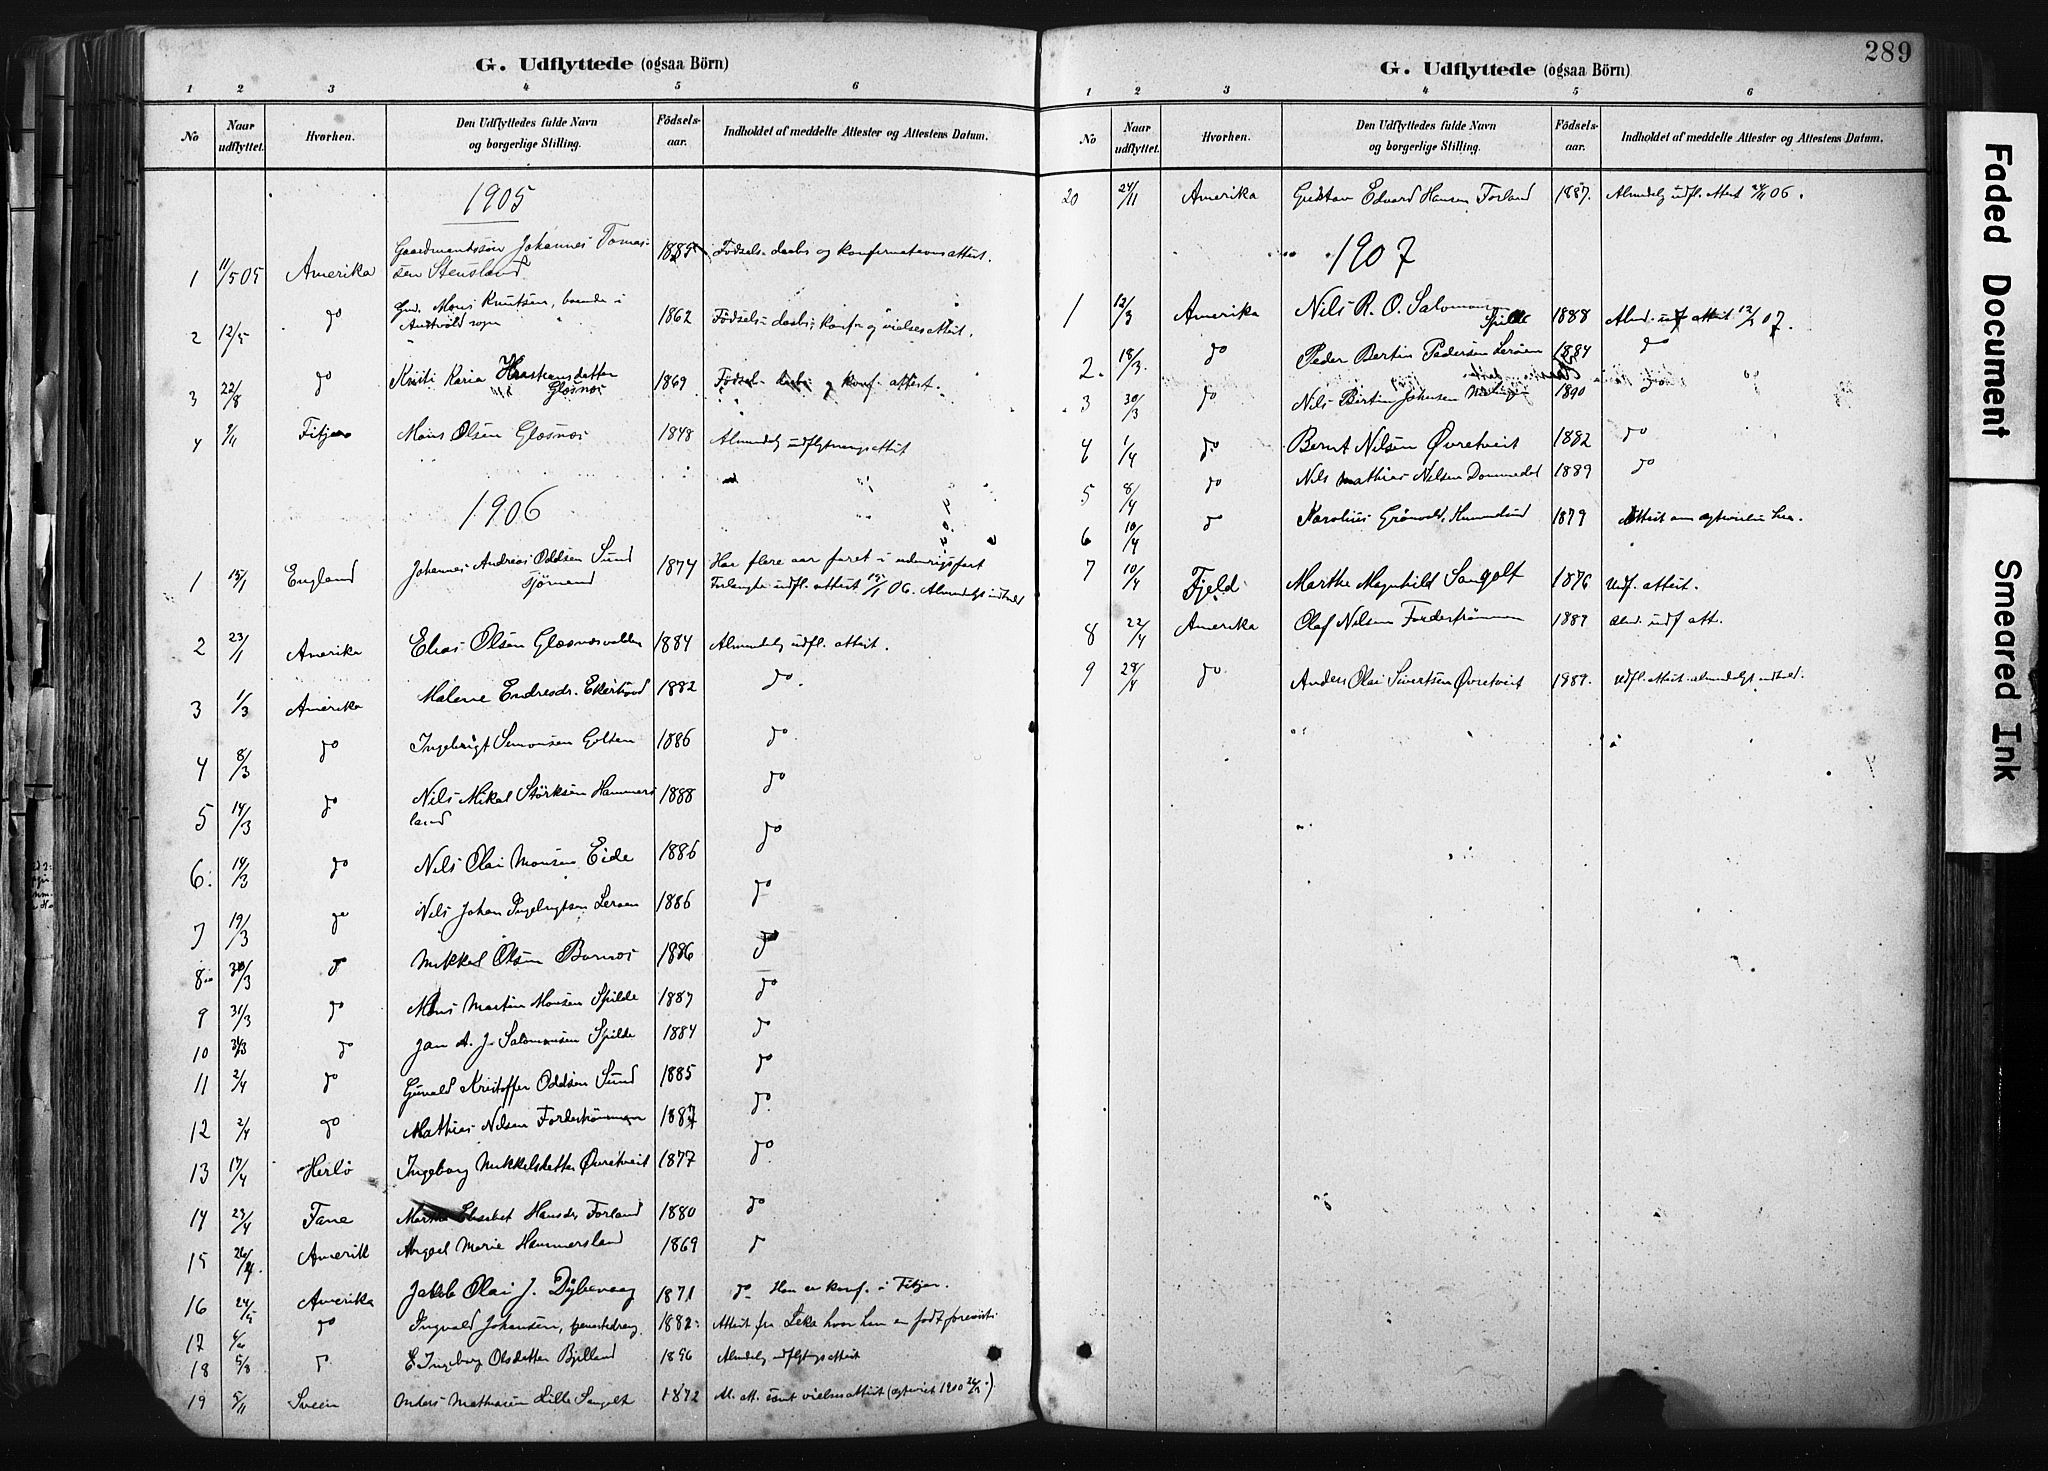 G. Udflyttede (ogsaa Börn)
1 2 3 4 5 6
No
Naar udflyttet.
Hvorhen.
Den Udflyttedes fulde Navn og borgerlige Stilling.
Födsels-aar.
Indholdet af meddelte Attester og Attestens Datum.
1905
1 11/5 05 Amerika Gaardmandssön Johannes Tomas-
sen Stensland 1885 Födsels- daabs og konfirmationsattest.
2 12/5 do Gmd. Mons Knutsen, boende i
Austvold sogn 1862 Födsels- daabs, konf. og vielsesattest.
3 22/8 do Kristi Karia
Glæsnæs 1869 Födsels- daabs og konf. attest.
4 9/11 Fitjar Mons Olsen Glæsnæs 1848 Almindelig udflytningsattest
1906
1 15/1 England Johannes Andreas Oddsen Sund
Tjörnend 1874 Har flere aar faret i udenrigsfart
Forlangte udfl. attest 15/1 06. Almindeligt indhold
2 23/1 Amerika Elias Olsen Glæsnæsvalden 1884 Almindelig udfl. attest.
3 1/3 Amerika Malene Endresdr. Ekerhovd 1882 do.
4 8/3 do Ingebrigt Simonsen Golten 1886 do
5 14/3 do Nils Mikal Störksen Hammers
land 1888 do
6. 14/3 do Nils Olai Monsen Eide 1886 do
7 19/3 do Nils Johan Ingebrigtsen Leröen 1886 do
8 30/3 do Mikkel Olsen Bornæs 1886 do
9 31/3 do Mons Martin Monsen Spilde 1887 do
10 31/3 do Jan A. J. Salomonsen Spilde 1884 do
11 2/4 do Guvald Kristoffer Oddsen Sund 1885 do
12 2/4 do Mathias Nilsen Fordeströmmen 1887 do.
13 17/4 Herlö Ingeborg Mikkelsdatter Øvretveit 1877 do.
14 23/4 Fane Marthe Elisabet Hansdr. Forland 1880 do
15 26/4. Amerik Abigael Marie Hammersland 1869 do
16 24/5 Amerika Jakob Olai J. Dybevaag 1871 do Han er konf. i Fitjar.
17 4/6 do Ingvald Johansen, tjenestedreng. 1882 Attest fra Leka hvor han er født forevist
18 5/8 do E. Ingeborg Olsdatter Bjelland 1896 Almindelig udflytngsattest
19 5/11 Sveen Anders Mathiasen Lille Sangolt 1872 Al. att. samt vielsesattest (egteviet 1900)
G. Udflyttede (ogsaa Börn)
289
1 2 3 4 5 6
No
Naar udflyttet.
Hvorhen.
Den Udflyttedes fulde Navn og borgerlige Stilling.
Födsels-aar.
Indholdet af meddelte Attester og Attestens Datum.
20 24/11 Amerika Gustav Edvard Hansen Forland 1887. Almindelig udfl. Attest 24/11 06.
1907
1 12/3 Amerika Nils R. O. Salomonsen
Spilde 1888 Almd. udf attest 12/3 07.
2. 18/3. do Peder Bertin Pedersen Leröen 1884 do
3 30/3 do Nils Bertin Johnsen 1890 do
4 1/4 do Bernt Nilsen Øvretveit 1882 do
5 8/4 do Nils Mathias Nilsen Dommedal 1889 do
6 10/4 do Karolius Grönvold, Hummelsund 1879 Attest om egtevielse her.
7 10/4 Fjeld Marthe Magnhild Sangolt 1876 Udf. attest.
8 22/4 Amerika Olaf Nilsen Fordeströmmen 1889 Almd. udf att.
9 29/4 do. Anders Olai Sivertsen Øvretveit 1889. Udfl. attest almindeligt indhold.
Faded Document
Smeared Ink